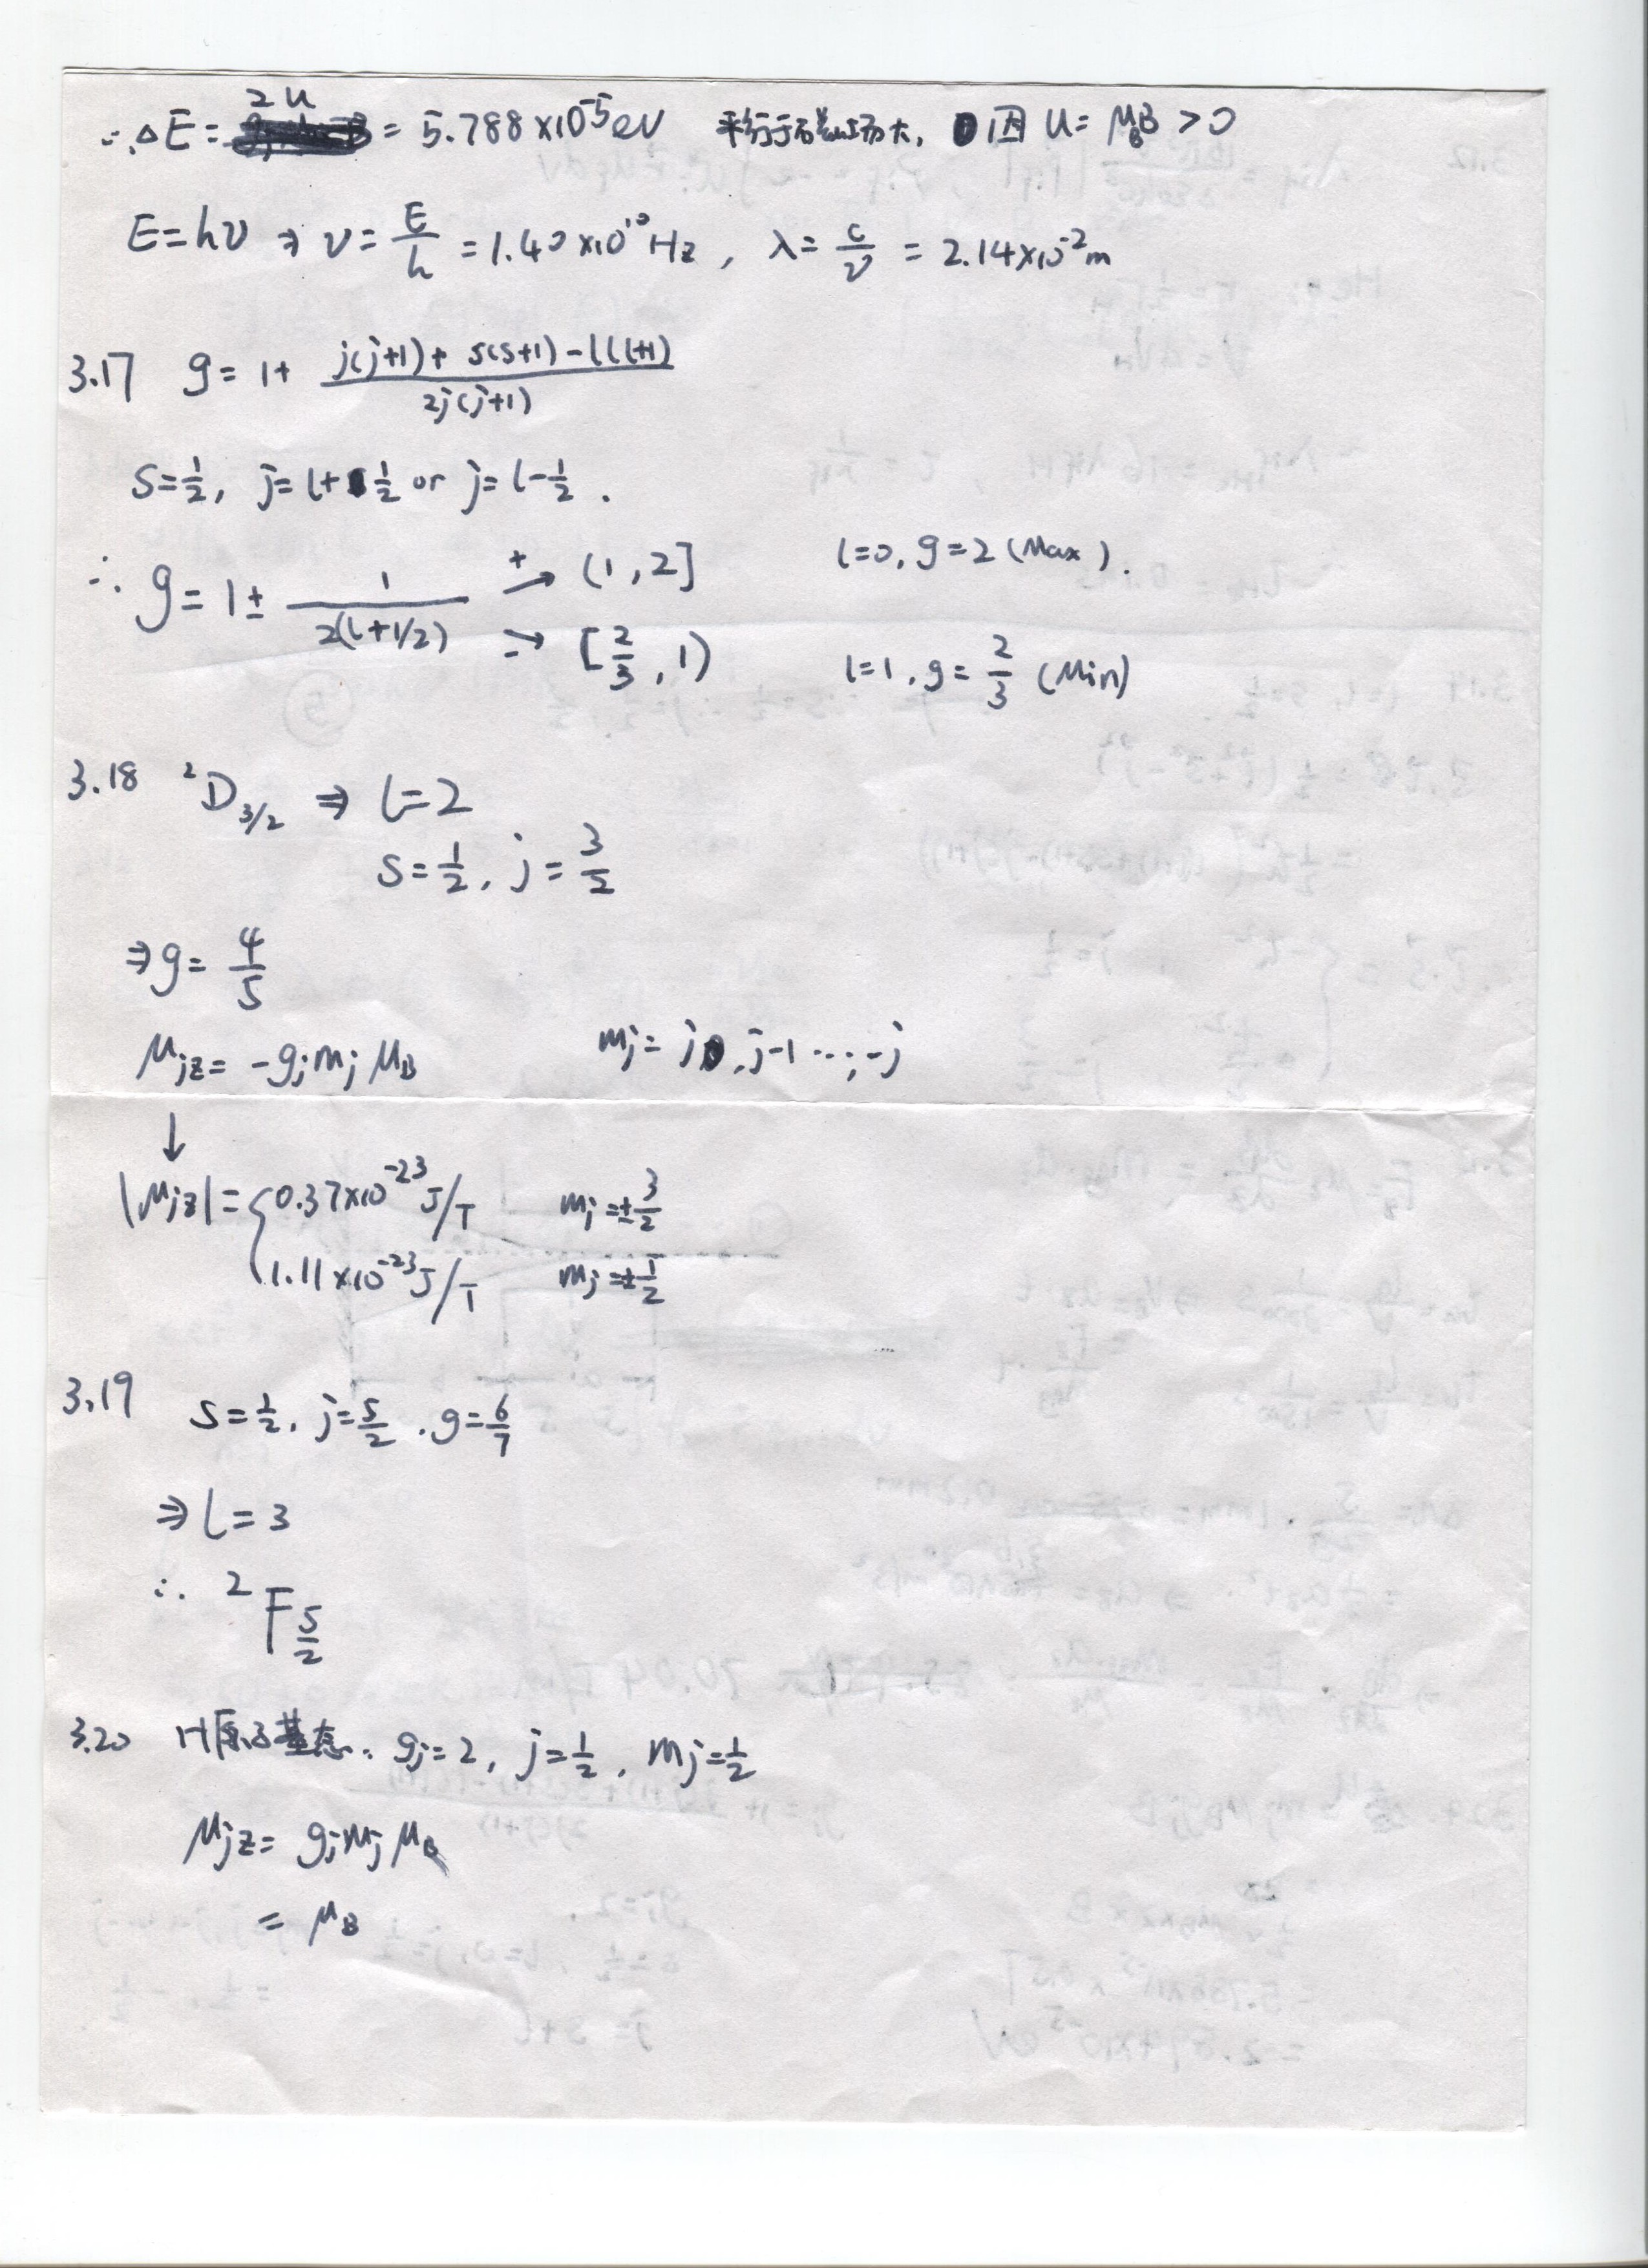 ∴ ΔE = 2u = 5.788×10⁻⁵eV 平行于磁场大, 因 U = μ_B B > 0
E = hν ⇒ ν = E/h = 1.40×10¹⁰Hz, λ = c/ν = 2.14×10⁻²m
3.17 g = 1 + (j(j+1) + s(s+1) - l(l+1))/(2j(j+1))
S = 1/2, j = l + 1/2 or j = l - 1/2.
∴ g = 1 ± 1/(2(l+1/2)) +→ (1, 2] l=0, g=2 (Max).
-→ [2/3, 1) l=1, g=2/3 (Min)
3.18 ²D₃/₂ ⇒ l=2
S = 1/2, j = 3/2
⇒ g = 4/5
μ_jz = -g_j m_j μ_B m_j = j, j-1 ..., -j
↓
|μ_jz| = { 0.37×10⁻²³J/T m_j = ±3/2
1.11×10⁻²³J/T m_j = ±1/2
3.19 S = 1/2, j = 5/2, g = 6/7
⇒ l = 3
∴ ²F_5/2
3.20 H原子基态: g_j = 2, j = 1/2, m_j = 1/2
μ_jz = g_j m_j μ_B
= μ_B